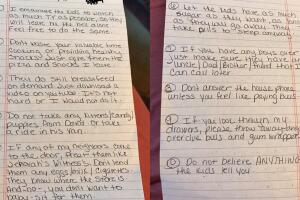 I encourage the kids to watch
as much TV as possible, so they
will leave me the hell alone.
Feel free to do the same.
Don't waste your valuable time
cooking or providing healthy
snacks. Just give them the
pizza and snacks I leave.
They do still breastfeed
on demand. Just download a
video on youtube. It's not
hard or I would not do it.
Do not take any kittens/candy/
puppies from Conto or take
a ride in his van.
If any of my neighbors come
to the door, treat them like
Jehovah's Witness. Don't lend
them any eggs/milk/cigarettes.
They know where the store is.
And-no-, you don't want to
baby-sit for them.
6 Let the kids have as much
sugar as they want, as long
as they will go away. Do not
take pills to sleep anyway.
7 If you have any boys over
just make sure they have an
uncle/Dad/Brother/friend that I
can call later.
8 Don't answer the house phone
unless you feel like paying bills.
9 If you look through my
drawers, please throw away any
overdue bills and gum wrappers.
10 Do not believe ANYTHING
the kids tell you